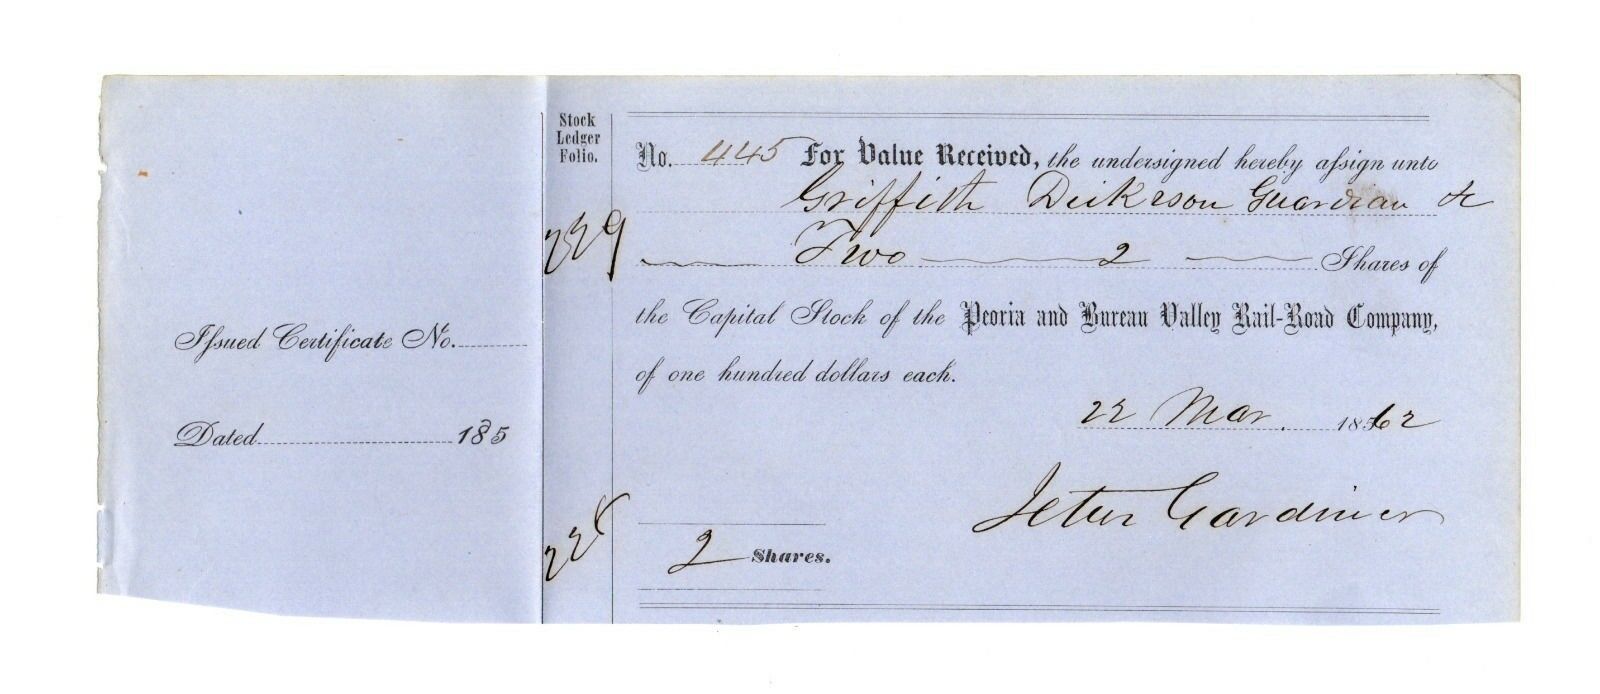 Issued Certificate No.
Dated 185
Stock
Ledger
Folio.
229
228
No. 445 For Value Received, the undersigned hereby assign unto
Griffith Dickerson Guardian &c
Two 2 Shares of
the Capital Stock of the Peoria and Bureau Valley Rail-Road Company,
of one hundred dollars each.
22 Mar. 1862
Gardiner
2 Shares.